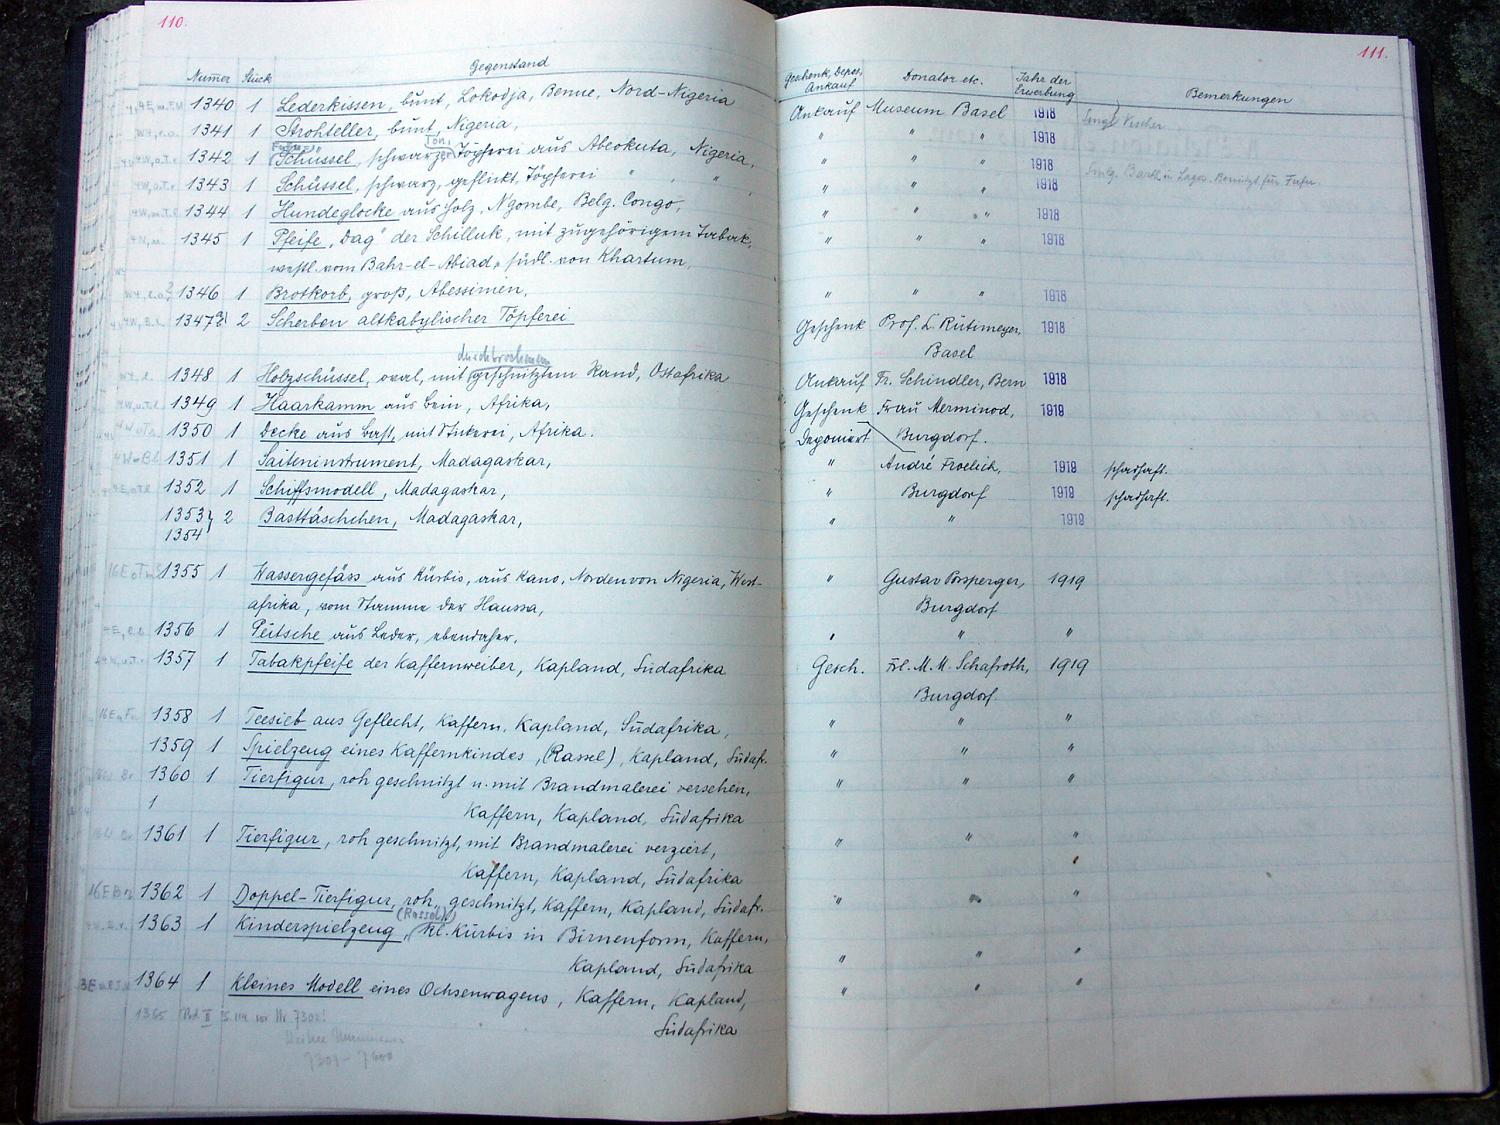 110.
Numer Stück Gegenstand
1340 1 Lederkissen, bunt, Lokodja, Benue, Nord-Nigeria
1341 1 Strohteller, bunt, Nigeria,
Ton
1342 1 Schüssel, schwarze Töpferei aus Abeokuta, Nigeria,
1343 1 Schüssel, schwarz, geflickt, Töpferei " " "
1344 1 Hundeglocke aus Holz, Ngombe, Belg. Congo,
1345 1 Pfeife, "Dag" der Schilluk, mit zugehörigem Tabak,
westl. vom Bahr-el-Abiad, südl. von Khartum,
1346 1 Brotkorb, groß, Abessinien,
1347 2 Scherben altkabylischer Töpferei
durchbrochenem
1348 1 Holzschüssel, oval, mit geschnitztem Rand, Ostafrika
1349 1 Haarkamm aus Bein, Afrika,
1350 1 Decke aus Bast, mit Stickerei, Afrika.
1351 1 Saiteninstrument, Madagaskar,
1352 1 Schiffsmodell, Madagaskar,
1353 } 2 Basttäschchen, Madagaskar,
1354
1355 1 Wassergefäss aus Kürbis, aus Kano, Norden von Nigeria, West-
afrika, vom Stamme der Haussa,
1356 1 Peitsche aus Leder, ebendaher,
1357 1 Tabakpfeife der Kaffernweiber, Kapland, Südafrika
1358 1 Teesieb aus Geflecht, Kaffern, Kapland, Südafrika,
1359 1 Spielzeug eines Kaffernkindes, (Rassel), Kapland, Südafr.
1360 1 Tierfigur, roh geschnitzt u. mit Brandmalerei versehen,
1
Kaffern, Kapland, Südafrika
1361 1 Tierfigur, roh geschnitzt, mit Brandmalerei verziert,
Kaffern, Kapland, Südafrika
1362 1 Doppel-Tierfigur, roh geschnitzt, Kaffern, Kapland, Südafr.
(Rassel)
1363 1 Kinderspielzeug, kl. Kürbis in Birnenform, Kaffern,
Kapland, Südafrika
1364 1 Kleines Modell eines Ochsenwagens, Kaffern, Kapland,
Südafrika
1365 Bd. II S. 114 vor Nr 7302!
Weitere Nummern
7301 - 7600
111.
Geschenk, Depos, Ankauf Donator etc. Jahr der Erwerbung Bemerkungen
Ankauf Museum Basel 1918 Vischer
" " " 1918
" " " 1918
" " " 1918
" " " 1918
" " " 1918
" " " 1918
Geschenk Prof. L. Rütimeyer, 1918
Basel
Ankauf Fr. Schindler, Bern 1918
Geschenk Frau Merminod, 1919
Deponiert Burgdorf.
" André Froelich, 1919 schadhaft.
" Burgdorf 1919 schadhaft.
" " 1919
" Gustav Porsperger, 1919
Burgdorf
" " "
Gesch. Frl. M. M. Schafroth, 1919
Burgdorf.
" " "
" " "
" " "
" " "
" " "
" " "
" " "